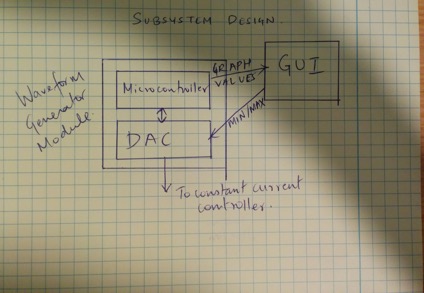 SUBSYSTEM DESIGN.
Waveform
Generator
Module.
Microcontroller
GRAPH
VALUES
GUI
DAC
MIN/MAX
To constant current
controller.